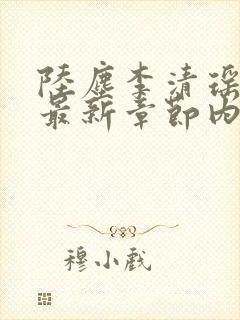 陸塵李清瑤
最新章節內
穆小戲